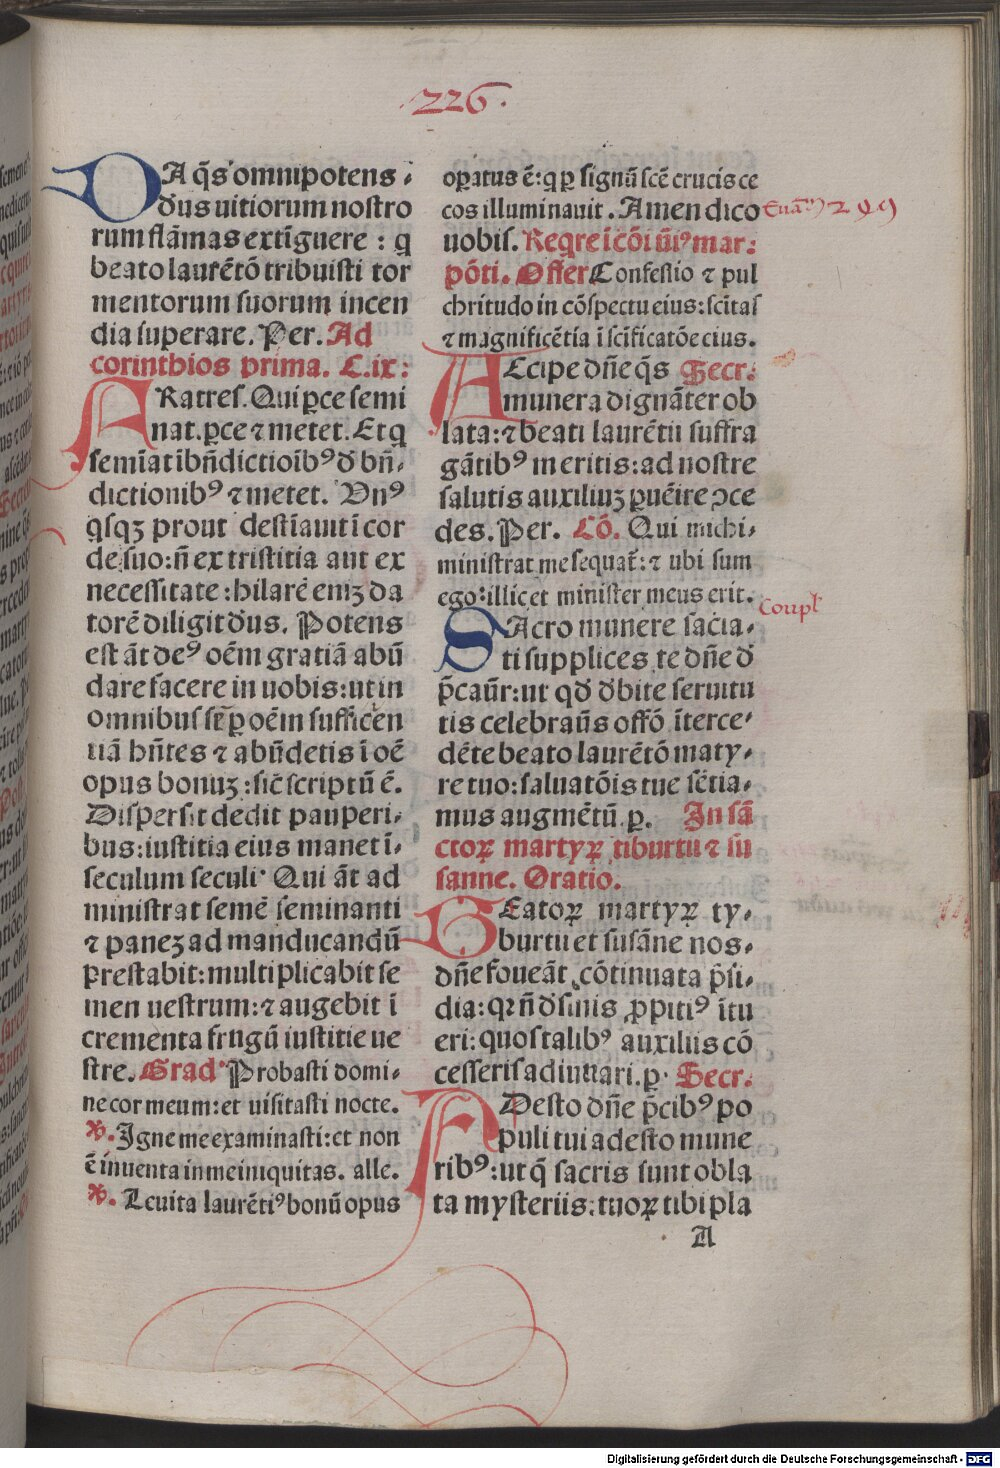 ·226·
DA q̃s omnipotens ·
d̄us uitiorum nostro
rum flãmas extĩguere : q
beato laurẽtõ tribuisti tor
mentorum suorum incen
dia superare. Per. Ad
corinthios prima. C.ix:
FRatres. Qui ꝑce semi
nat. ꝑce ⁊ metet. Et q
semĩat ĩ bñdictioĩbꝰ d̄ bñ·
dictionibꝰ ⁊ metet. Vnꝰ
qsqꝫ prout destĩauit ĩ cor
de suo: ñ ex tristitia aut ex
necessitate : hilarẽ enĩꝫ da
torẽ diligit d̄us. Potens
est ãt deꝰ oẽm gratiã abũ
dare facere in uobis: ut in
omnibus sẽꝑ oẽm sufficen
tiã hñtes ⁊ abũdetis ĩ oẽ
opus bonuꝫ : sic̃ scriptũ ẽ.
Dispersit dedit pauperi·
bus: iustitia eius manet ĩ·
seculum seculi· Qui ãt ad
ministrat semẽ seminanti
⁊ paneꝫ ad manducandũ
prestabit: multiplicabit se
men uestrum: ⁊ augebit ĩ
crementa frugũ iustitie ue
stre. Grad· Probasti domi·
ne cor meum: et uisitasti nocte.
℣. Igne me examinasti: et non
ẽ inuenta in me iniquitas. alle.
℣. Leuita laurẽtiꝰ bonũ opus
oꝑatus ẽ: q ꝑ signũ scẽ crucis ce
cos illuminauit . Amen dico
uobis. Reqre ĩ cõi uniꝰ mar:
põti. Offer Confessio ⁊ pul
chritudo in cõspectu eius: scĩtas
⁊ magnificẽtia ĩ scĩficatõe eius.
ACcipe dñe q̃s Secr:
munera dignãter ob
lata: ⁊ beati laurẽtii suffra
gãtibꝰ meritis: ad nostre
salutis auxiliuꝫ ꝓuẽire ꝯce
des. Per. Cõ. Qui michi·
ministrat me sequat̃: ⁊ ubi sum
ego: illic et minister meus erit.
SAcro munere sacia·
ti supplices te dñe d̄
p̃caur̃: ut qd̄ d̄bite seruitu
tis celebraũs offõ ĩterce·
dẽte beato laurẽtõ maty·
re tuo: saluatõis tue sẽtia·
mus augmẽtũ. ꝑ. In sã
ctoꝝ martyꝝ tiburtii ⁊ su
sanne. Oratio.
BEatoꝝ martyꝝ ty·
burtii et susãne nos·
dñe foueãt cõtinuata p̃si·
dia: qꝛ ñ d̄sinis ꝓpitiꝰ ĩtu
eri: quos talibꝰ auxiliis cõ
cesseris adiuuari. ꝑ· Secr:
ADesto dñe p̃cibꝰ po
puli tui adesto mune
ribꝰ: ut q̃ sacris sunt obla
ta mysteriis: tuoꝝ tibi pla
A
Coupl'
Digitalisierung gefördert durch die Deutsche Forschungsgemeinschaft - DFG